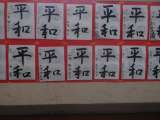 平和
平和
平和
平和
平和
平和
平和
平和
平和
平和